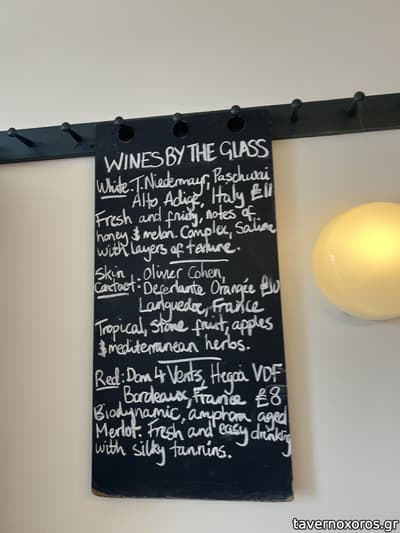 WINES BY THE GLASS
White: T. Niedermayr, Paschwai
Alto Adige, Italy £11
Fresh and fruity, notes of
honey & melon. Complex, saline
with layers of texture.
Skin
Contact: Oliver Cohen,
Déferlante Orangée £10
Languedoc, France
Tropical, stone fruit, apples
& mediterranean herbs.
Red: Dom 4 Vents, Hegoa VDF
Bordeaux, France £8
Biodynamic, amphora aged
Merlot. Fresh and easy drinking
with silky tannins.
tavernoxoros.gr